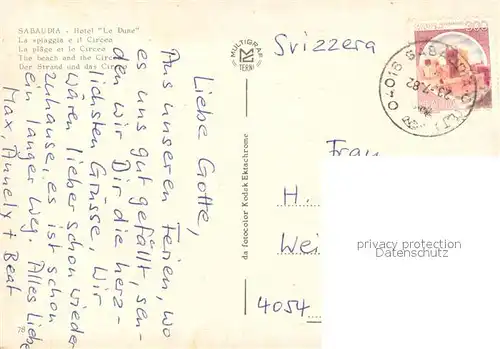 SABAUDIA - Hotel "Le Dune"
La spiaggia e il Circeo
La plâge et le Circeo
The beach and the Circeo
Der Strand und das Circeo
Liebe Gotte,
Aus unseren Ferien, wo
es uns gut gefällt, sen-
den wir Dir die herz-
lichsten Grüsse. Wir
wären lieber schon wieder
zuhause, es ist schon
ein langer Weg. Alles Liebe
Max, Annely + Beat
78
MULTIGRAF
TERNI
da fotocolor Kodak Ektachrome
Svizzera
04016 SABAUDIA
23-7-82
Frau
H.
Wei
4054
personal data protection
Datenschutz